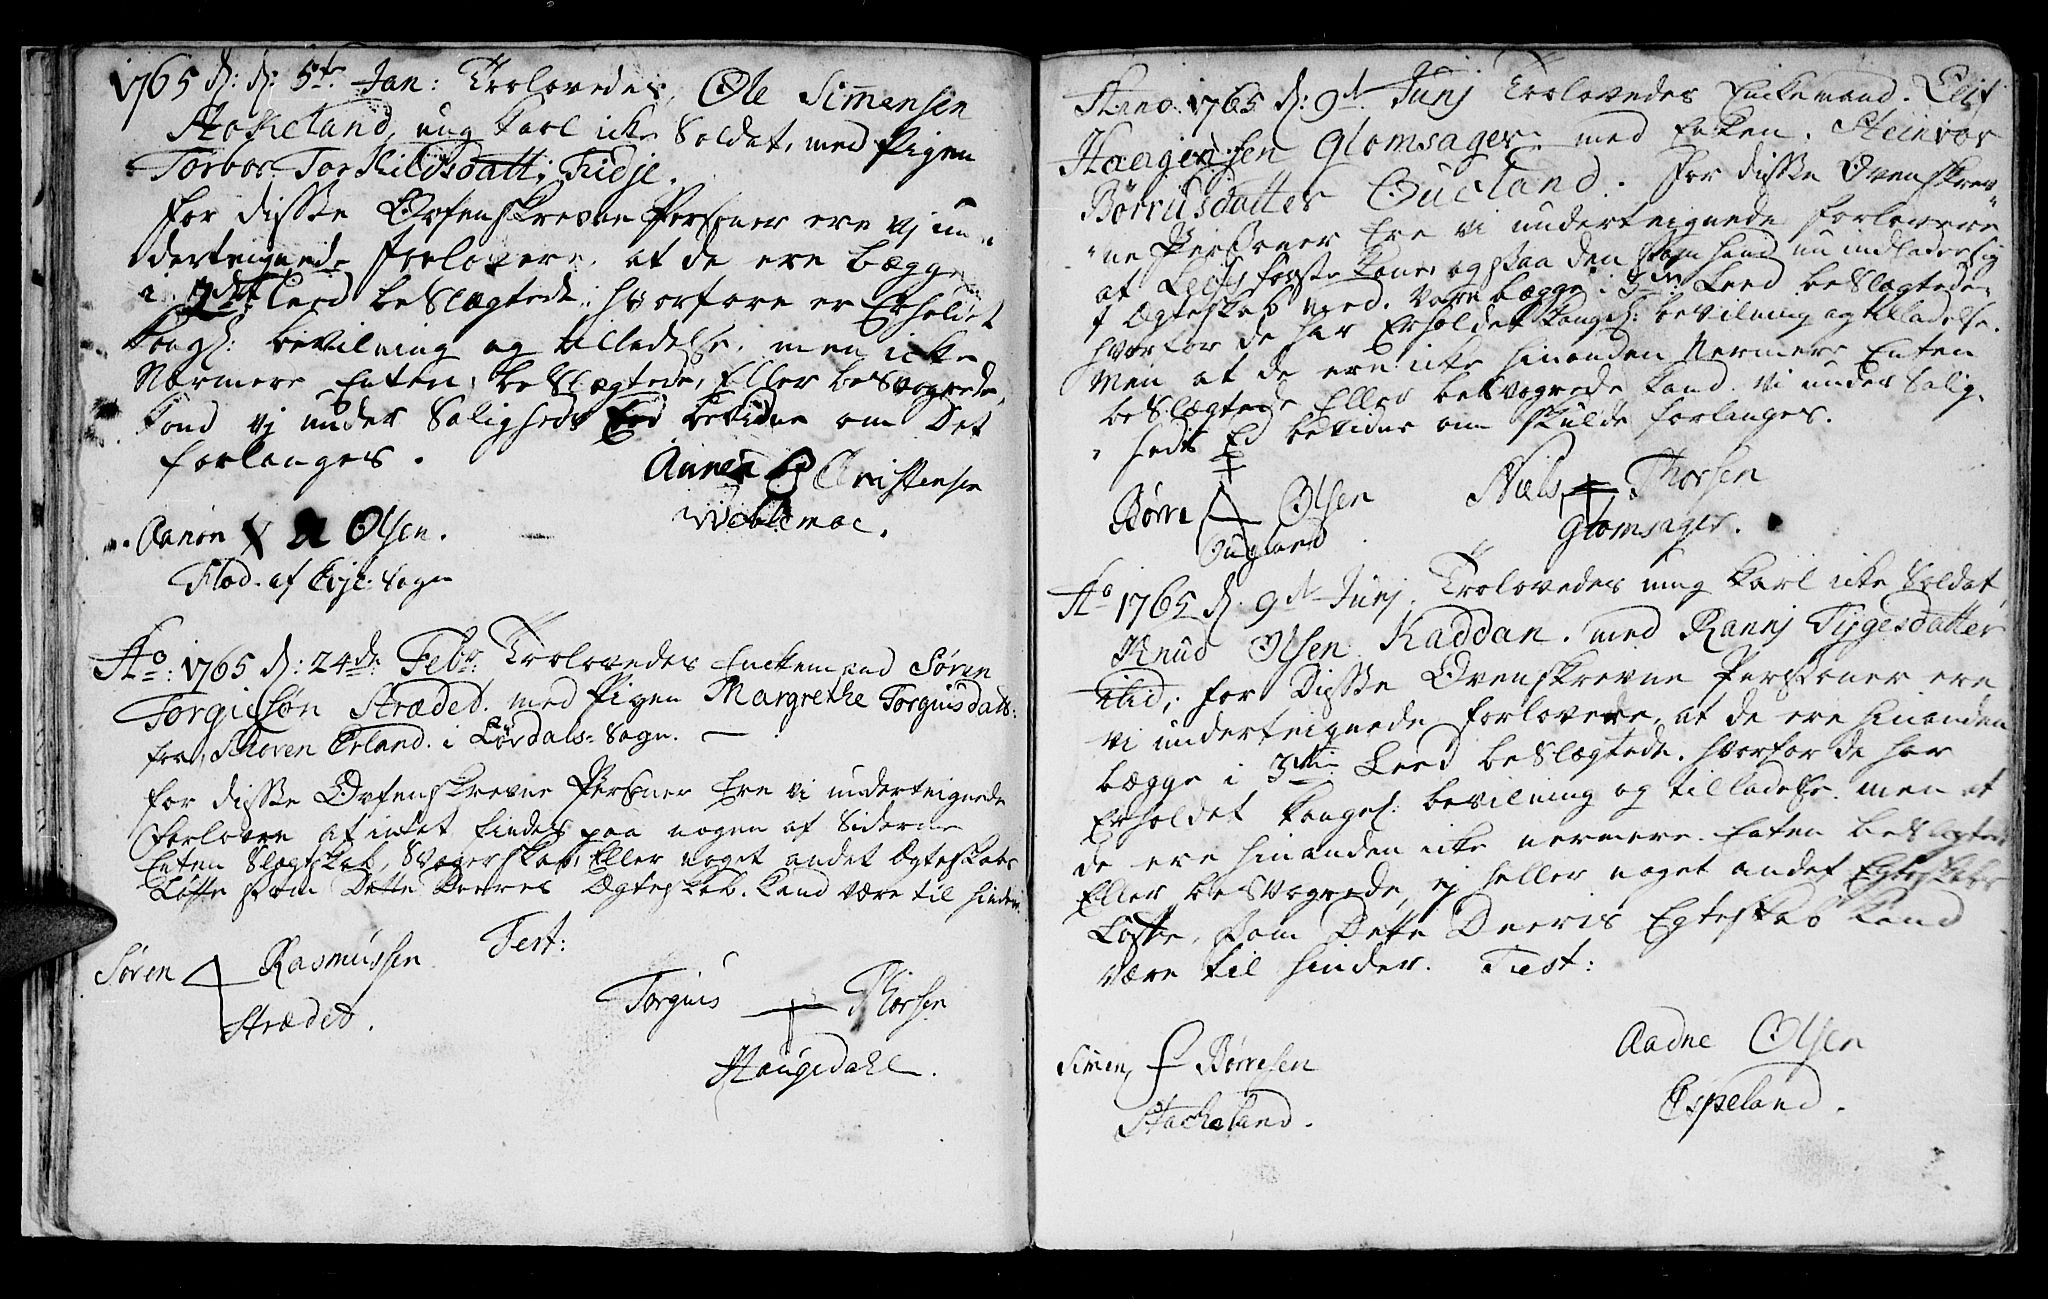 1765 d: d: 5te Jan: Trolovedes, Ole Simensen
Stokeland, ung karl icke Soldat, med Pigen
Torbor Torkildsdatt; Tidje.
for disse Ovfenskrevne Personer ere vj un„
derteignede Forlovere, at de ere bægge
i Leed beslægtede; hvorfore er Erholdet
Kongl: bevilning og tilladelse, men icke
Nærmere Enten beslægtede, Eller besvogrede,
kand vj under Saligheds Eed bevidne om Det
forlanges.
Aanen Christensen
Aanon X Olsen.
Flad. af Evje Sogn
Ao: 1765 d: 24de Febr: Trolovedes Enckemand Søren
Torgiusøn Strædet. med Pigen Margrethe Torgiusdatt:
fra Erland. i Sogn. —
for disse Ovfenskrevne Personer Ere vi underteignede
forlovere at intet findes paa nogen af Siderne
Enten Slægtskab, Svogerskab, Eller noget andet Ægteskabs
Løfte som Dette Deeres Ægteskab. kand være til hinder.
Test:
Søren Rasmussen
Strædet.
Torgius Thorsen
Haugedahl.
Anno. 1765 d: 9de Junj Trolovedes Enckemand. Elif
Glomsager med Enken. Steinvør
Børrusdatter Ougland. for disse Ovenskrev„
„ne Personer Ere vi underteignede forlovere
at første kone, og paa den som hand nu indlader sig
i Ægteskab med. Vare bægge i 3die Leed beslægtede,
hvorfor de har Erholdet Kongel: bevilning og tilladelse.
Men at de ere icke hinanden Nermere Enten
beslægtede Eller besvogrede kand vi under Salig„
„heds Ed bevidne om skulde forlanges.
Børre Olsen
Ougland
Niels Thorsen
Glomsager.
Ao 1765 d: 9de Junj, Trolovedes ung karl icke Soldat,
Knud Olsen Kaddan. med Rannj Tygesdatter
ibid; for Disse Ovenskrevne Personer ere
vi underteignede forlovere, at de ere hinanden
bægge i 3die Leed beslægtede. hvorfor de har
Erholdet Kongel: bevilning og tilladelse. men at
de ere hinanden icke nermere Enten beslegtede
Eller besvogrede, ej heller noget andet Egteskabs
Løfte, som Dette Deeris Egteskab kand
være til hinder. Test:
Simen Børresen
Stackeland.
Aadne Olsen
Espeland.